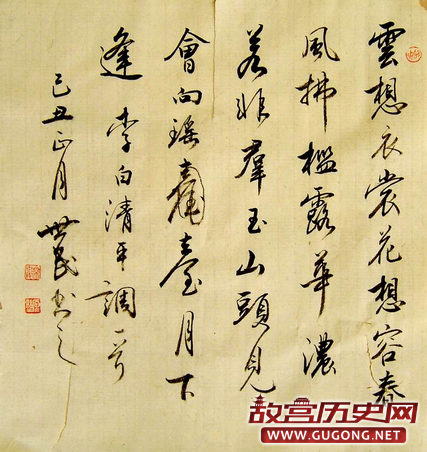 雲想衣裳花想容春
風拂檻露華濃
若非羣玉山頭見
會向瑶臺月下
逢 李白清平調一首
己丑正月 世民书之
故宫历史网
WWW.GUGONG.NET